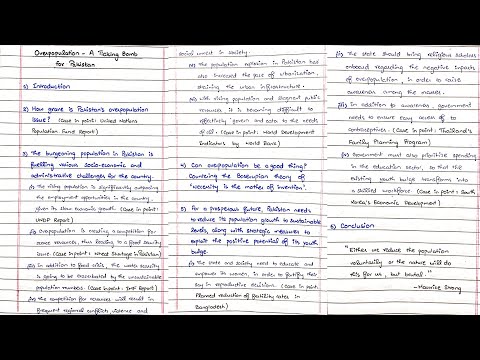 Overpopulation - A Ticking Bomb
for Pakistan
1) Introduction
2) How grave is Pakistan's overpopulation
issue? (Case in point: United Nations
Population Fund Report)
3) The burgeoning population in Pakistan is
fuelling various socio-economic and
administrative challenges for the country.
i) The rising population is significantly outpacing
the employment opportunities in the country,
given its slow economic growth (Case in point:
UNDP Report)
ii) Overpopulation is creating a competition for
scarce resources, thus leading to a food security
issue (Case in point: Wheat shortage in Pakistan)
iii) In addition to food crisis, the water scarcity
is going to be exacerbated by the unsustainable
population numbers (Case in point: IMF Report)
iv) The competition for resources will result in
frequent regional conflict, violence and
social unrest in society.
v) The population explosion in Pakistan has
also increased the pace of urbanisation,
straining the urban infrastructure.
vi) With rising population and stagnant public
resources, it is becoming difficult to
effectively govern and cater to the needs
of all. (Case in point: World Development
Indicators by World Bank)
4) Can overpopulation be a good thing?
Countering the Boserupian theory of
"necessity is the mother of invention".
5) For a prosperous future, Pakistan needs
to reduce its population growth to sustainable
levels, along with strategic measures to
exploit the positive potential of its youth
bulge.
i) The state and society need to educate and
empower its women, in order to fortify their
say in reproductive decisions. (Case in point:
Planned reduction of fertility rates in
Bangladesh)
ii) The state should bring religious scholars
onboard regarding the negative impacts
of overpopulation in order to raise
awareness among the masses.
iii) In addition to awareness, government
needs to ensure easy access of to
contraceptives. (Case in point: Thailand's
Family Planning Program)
iv) Government must also prioritise spending
in the education sector, so that the
existing youth bulge transforms into
a skilled workforce (Case in point: South
Korea's Economic Development)
6) Conclusion
"Either we reduce the population
voluntarily or the nature will do
this for us, but brutal."
-Maurice Strong